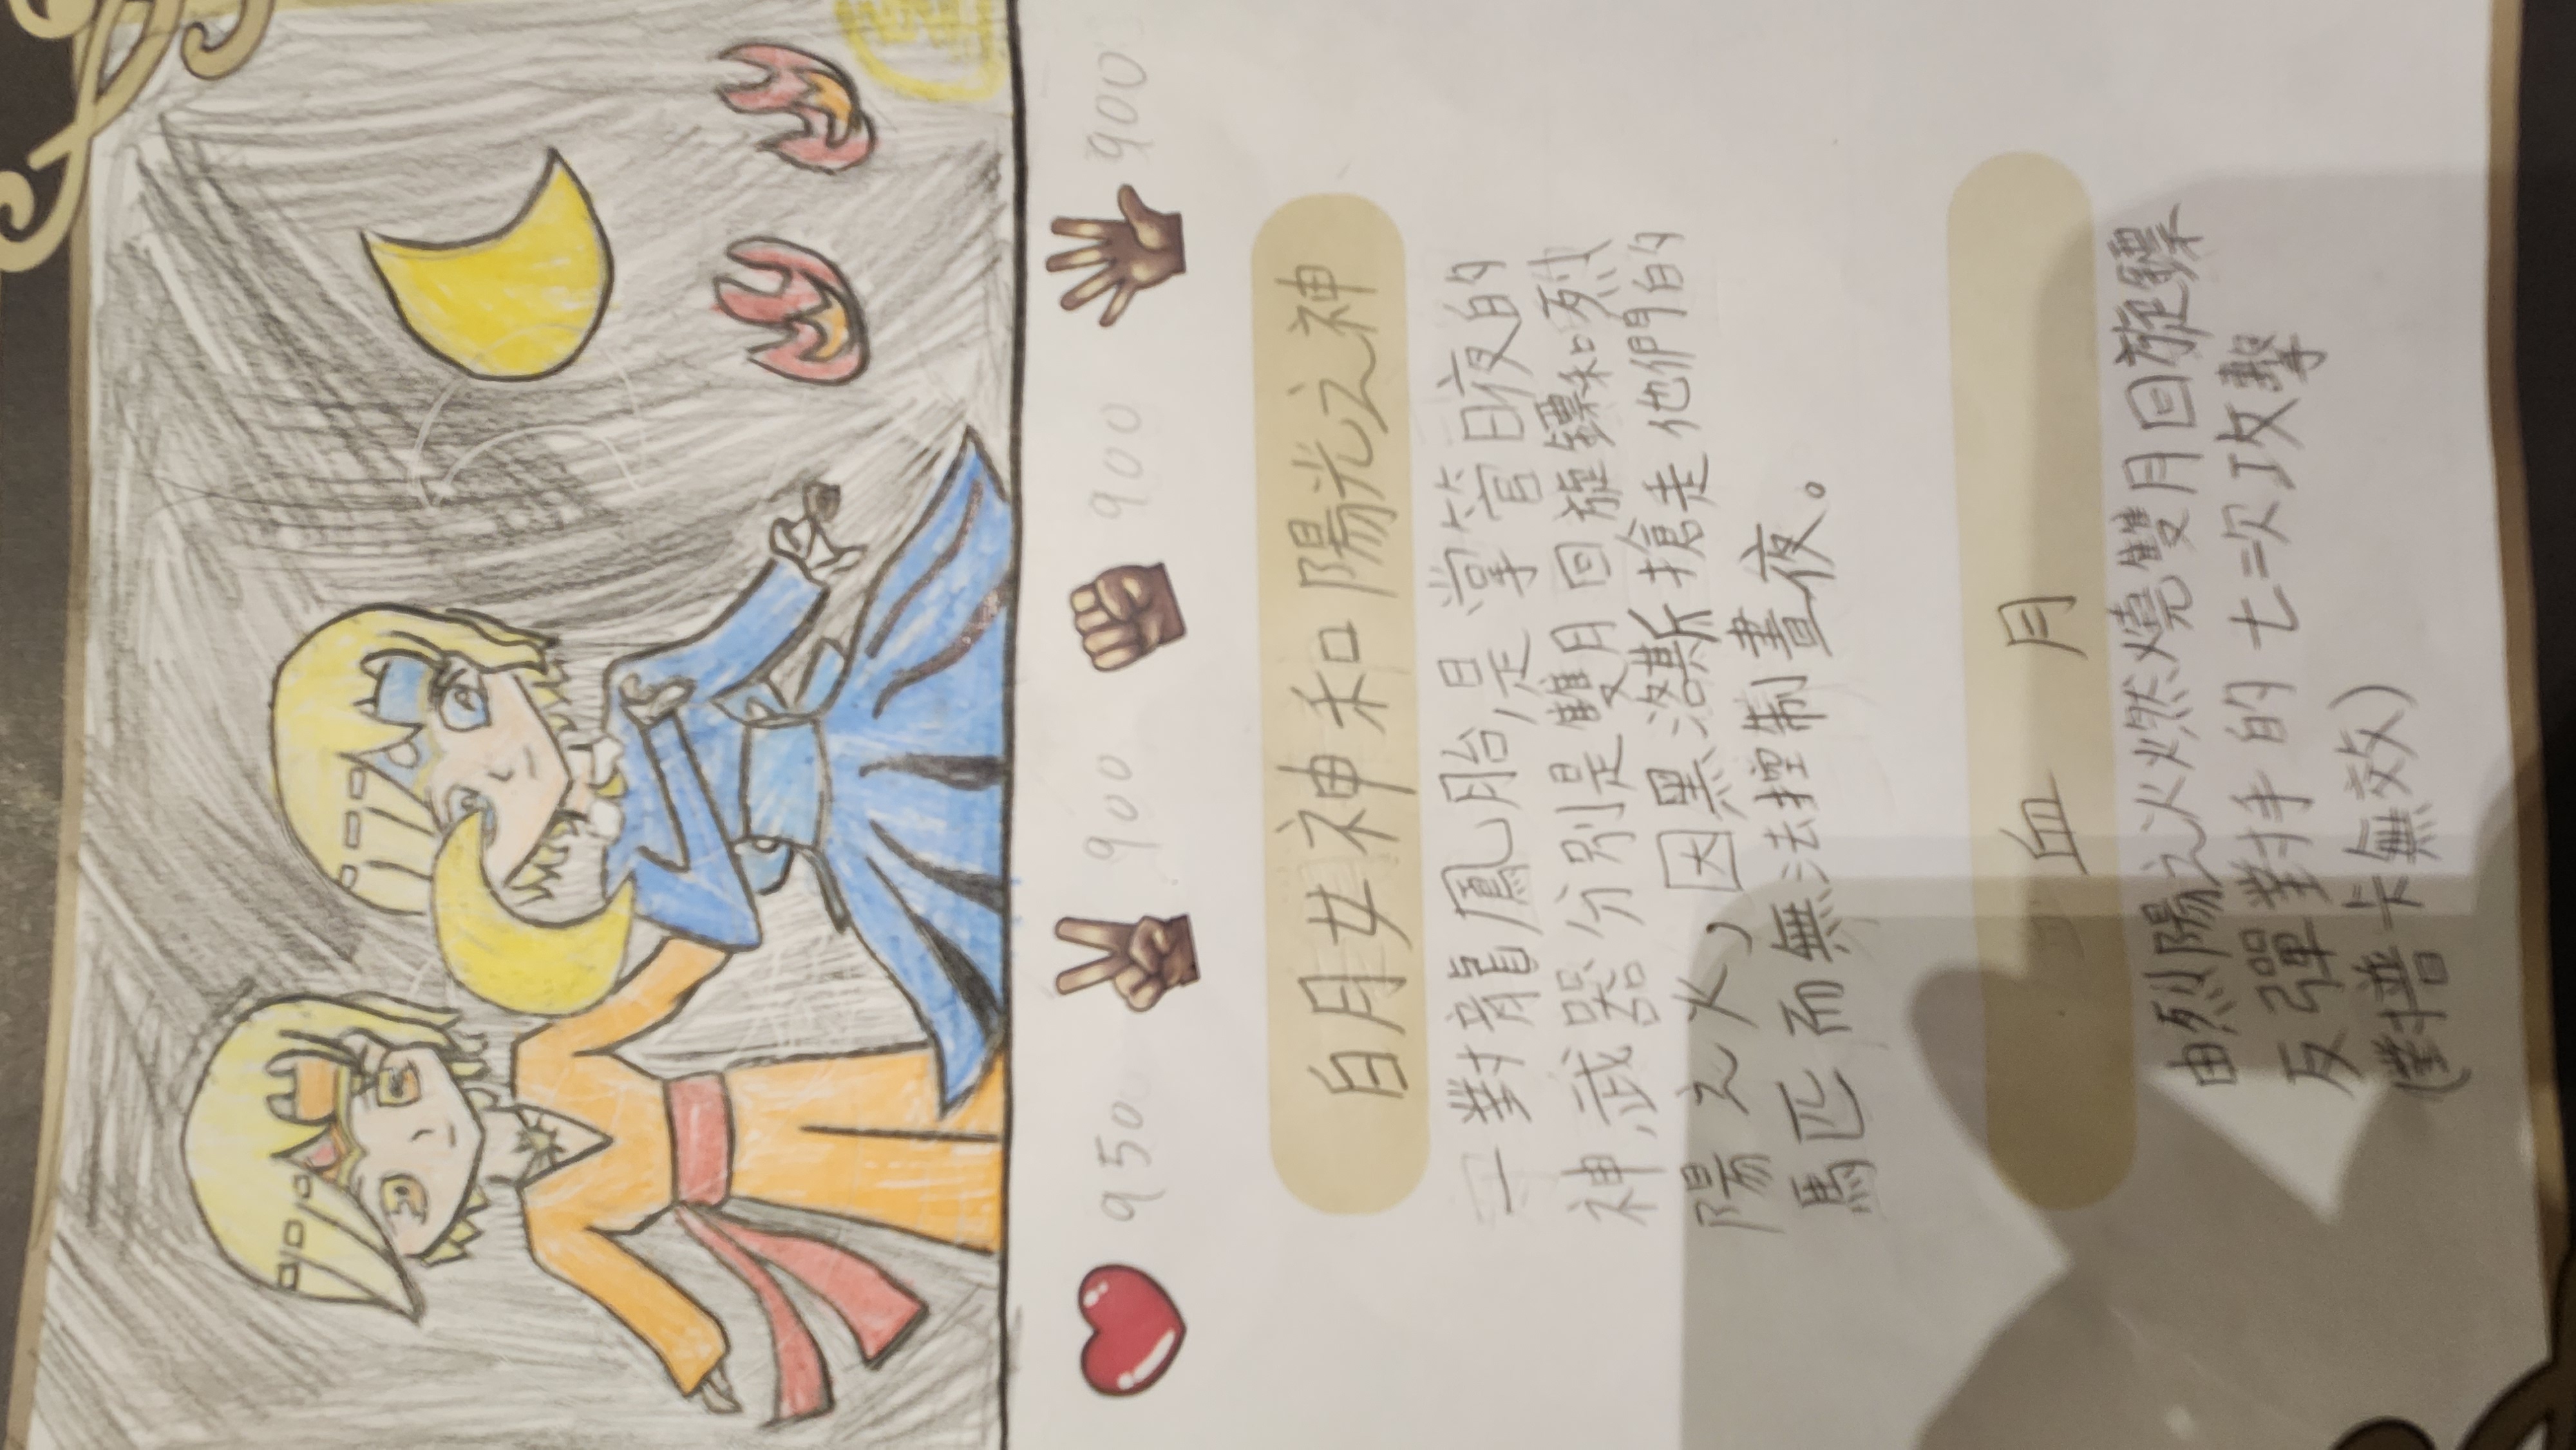 950 900 900 900
白月女神和陽光之神
一對龍鳳胎是掌管日夜的
神,武器分別是雙月回旋鏢和烈
陽之火,因黑洛斯搶走他們的
馬匹而無法控制晝夜。
血月
由烈陽之火燃燒雙月回旋鏢
反彈對手的七次攻擊
(對普卡無效)